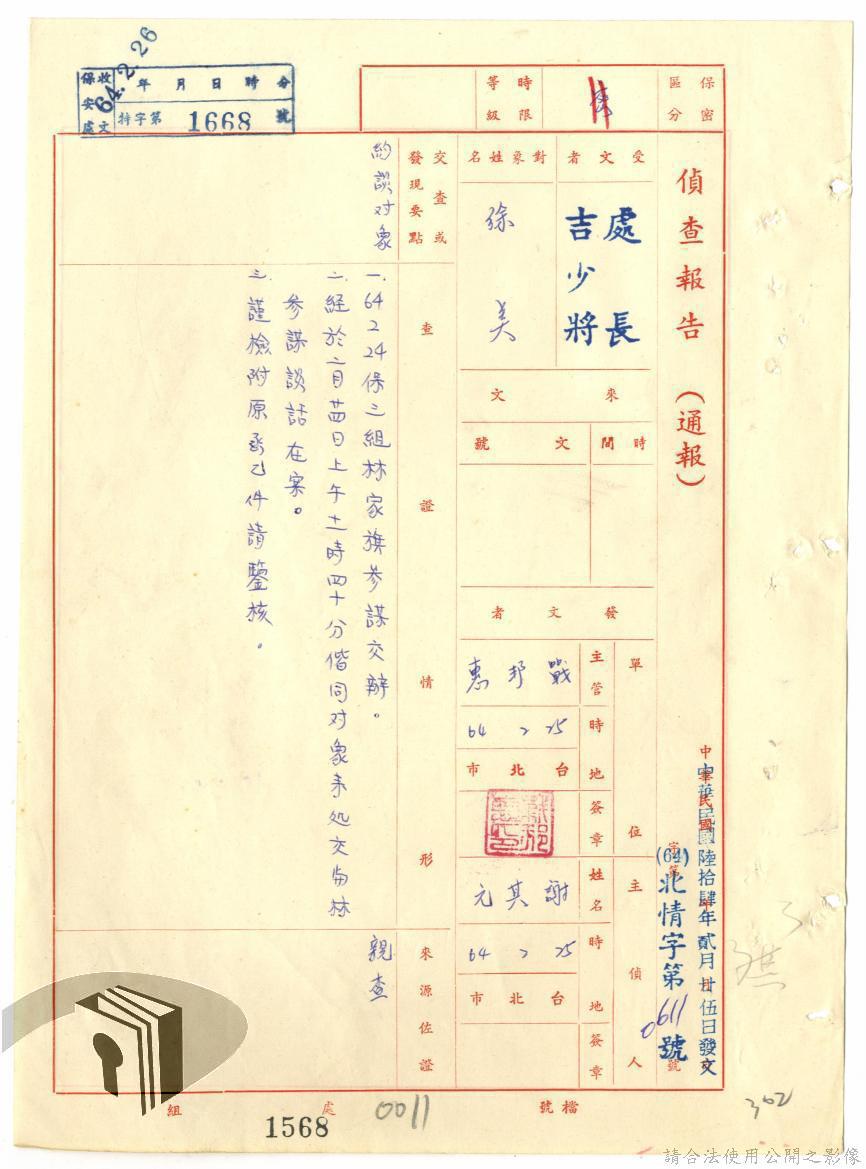 保密
區分
時限
等級
收文
保安處
年 月 日 時 分
64.2.26
持字第 1668 號
偵查報告（通報）
中華民國陸拾肆年貳月廿伍日發文
(64)北情字第0611號
受文者
處長
吉少將
對象姓名
徐美
來文
時間
文號
發文者
單位
主管
戰邦惠
時
64 2 25
地
台北市
簽章
主偵人
姓名
謝其元
時
64 2 25
地
台北市
簽章
交查或發現要點
約談对象
查證情形
一. 64 2 24保三組林家旗参謀交辦。
二. 經於二月廿四日上午十一時四十分偕同对象来处交与林
参謀談話在案。
三. 謹檢附原承乙件請鑒核。
來源佐證
親查
檔號
處
組
0011
1568
302
請合法使用公開之影像